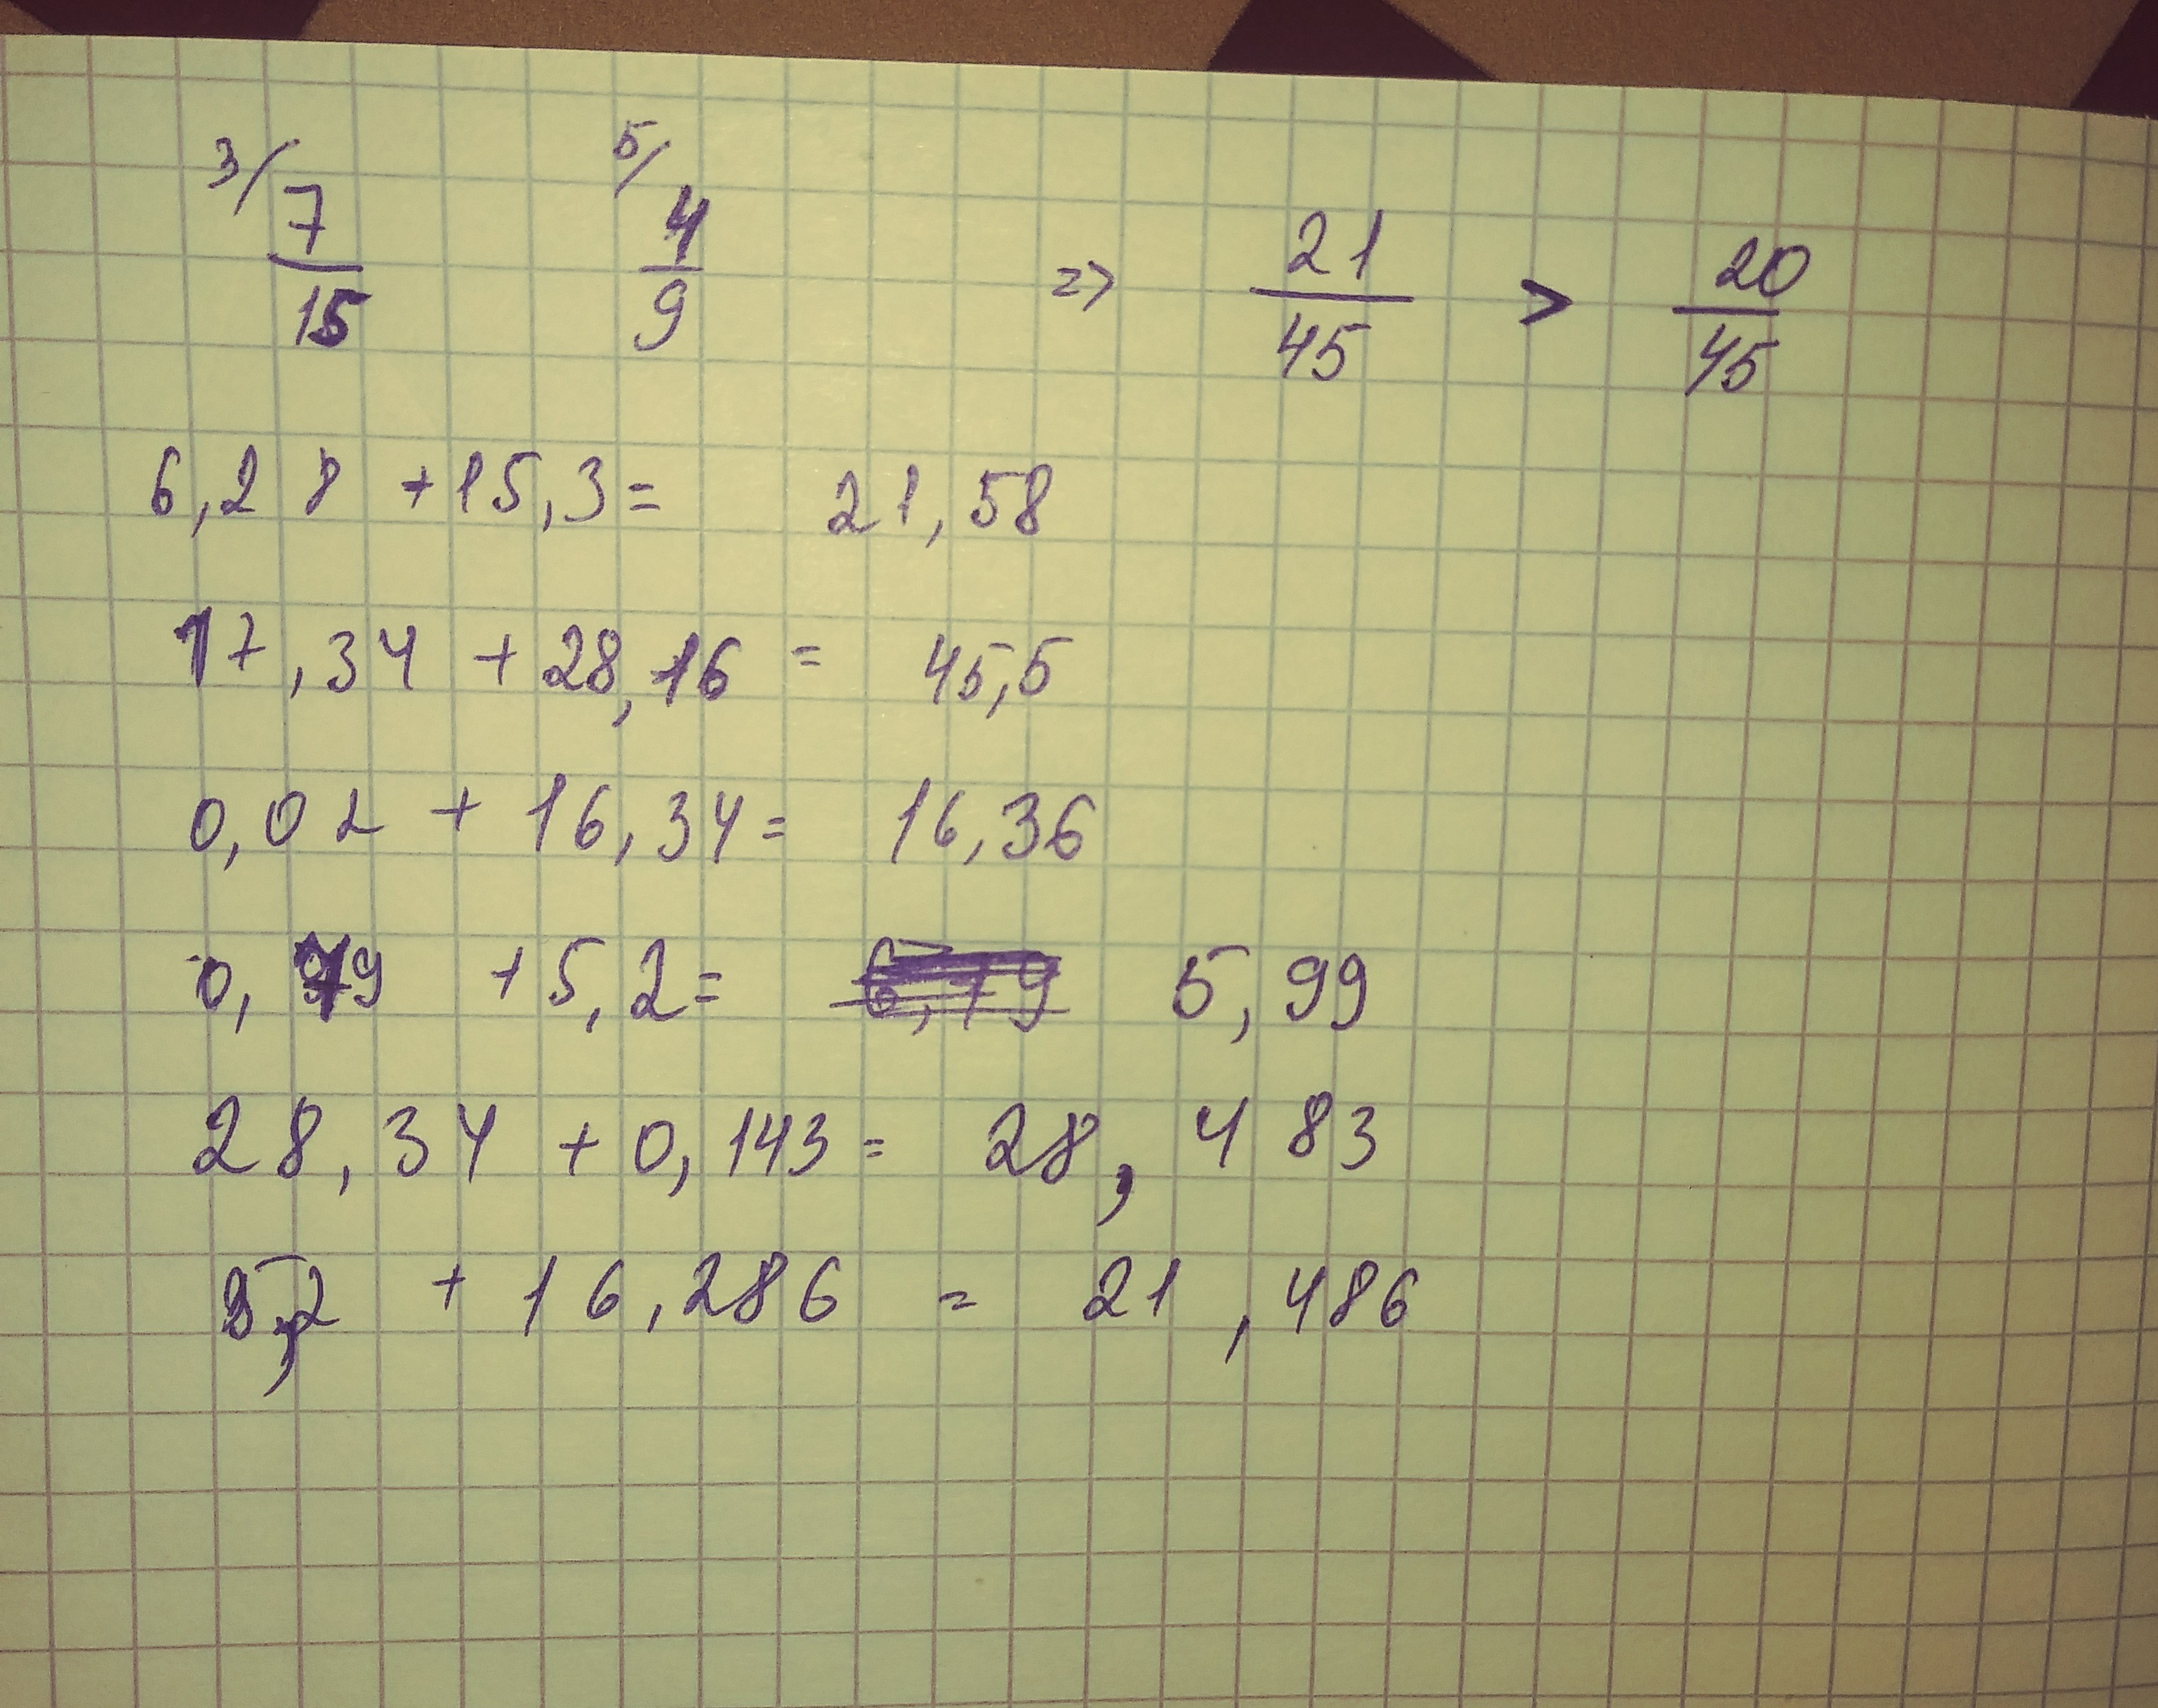 3/ 7/15 5/ 4/9 => 21/45 > 20/45
6,28 + 15,3 = 21,58
17,34 + 28,16 = 45,5
0,02 + 16,34 = 16,36
0,79 + 5,2 = 5,99
28,34 + 0,143 = 28,483
5,2 + 16,286 = 21,486